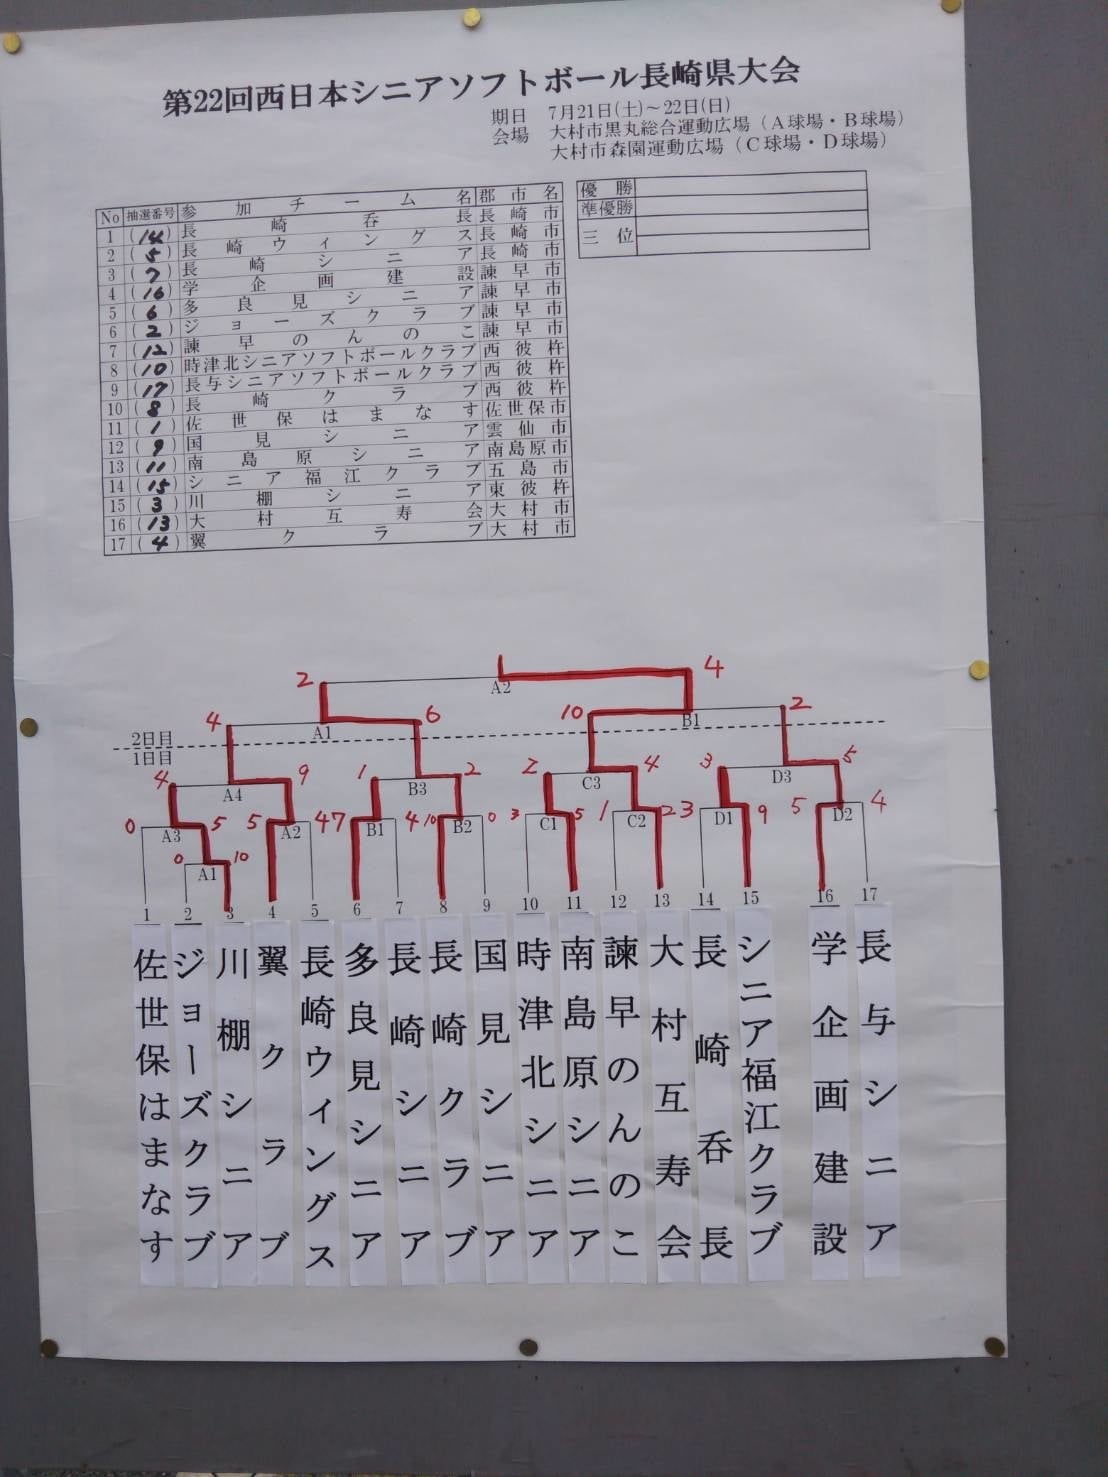 第22回西日本シニアソフトボール長崎県大会
期日 7月21日(土)～22日(日)
会場 大村市黒丸総合運動広場(A球場・B球場)
大村市森園運動広場(C球場・D球場)
No 抽選番号 参加チーム名 郡市名
1 (14) 長崎呑長 長崎市
2 (5) 長崎ウィングス 長崎市
3 (7) 長崎シニア 長崎市
4 (16) 学企画建設 諫早市
5 (6) 多良見シニア 諫早市
6 (2) ジョーズクラブ 諫早市
7 (12) 諫早のんのこ 諫早市
8 (10) 時津北シニアソフトボールクラブ 西彼杵
9 (17) 長与シニアソフトボールクラブ 西彼杵
10 (8) 長崎クラブ 佐世保市
11 (1) 佐世保はまなす 雲仙市
12 (9) 国見シニア 南島原市
13 (11) 南島原シニア 五島市
14 (15) シニア福江クラブ 東彼杵
15 (3) 川棚シニア 大村市
16 (13) 大村互寿会 大村市
17 (4) 翼クラブ
優勝
準優勝
三位
2 A2 4
4 A1 6 10 B1 2
2日目
1日目
4 A4 9 1 B3 2 2 C3 4 3 D3 5
0 A3 5 5 A2 4 7 B1 4 10 B2 0 3 C1 5 1 C2 2 3 D1 9 5 D2 4
0 A1 10
1 2 3 4 5 6 7 8 9 10 11 12 13 14 15 16 17
佐世保はまなす
ジョーズクラブ
川棚シニア
翼クラブ
長崎ウィングス
多良見シニア
長崎シニア
長崎クラブ
国見シニア
時津北シニア
南島原シニア
諫早のんのこ
大村互寿会
長崎呑長
シニア福江クラブ
学企画建設
長与シニア